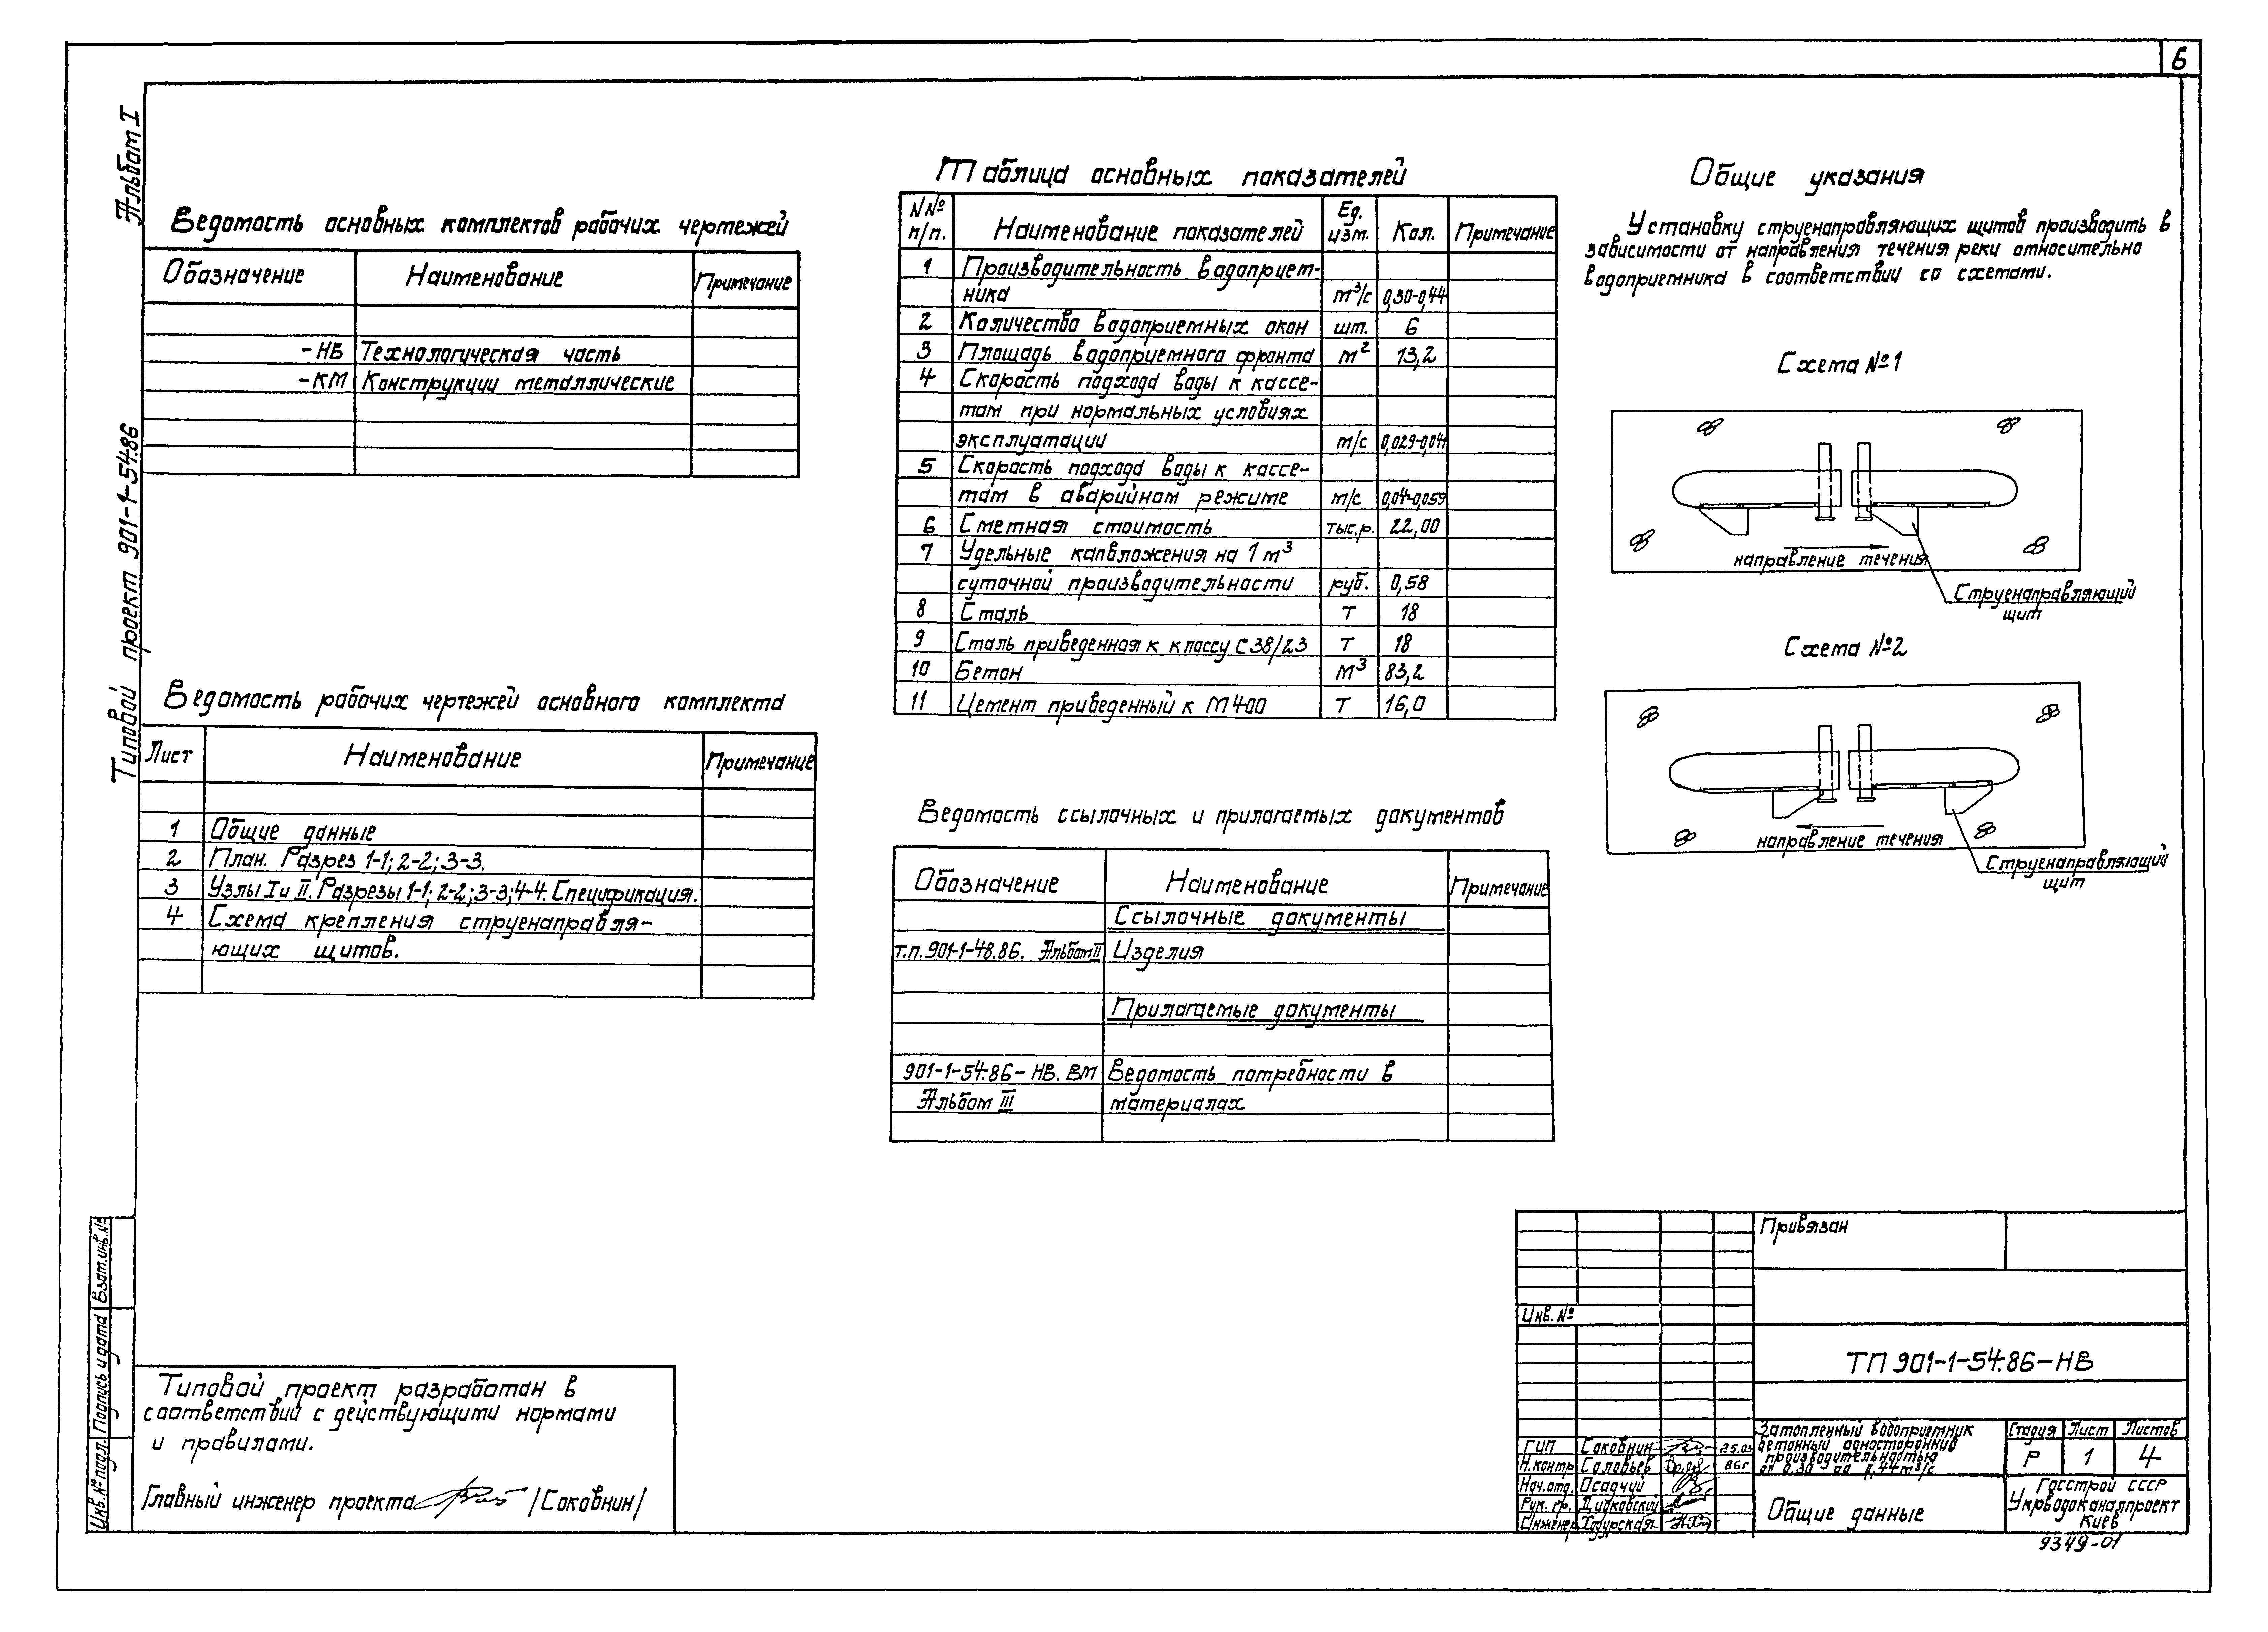 6
Альбом I
Типовой проект 901-1-54.86
Ведомость основных комплектов рабочих чертежей
Обозначение Наименование Примечание
-НВ Технологическая часть
-КМ Конструкции металлические
Ведомость рабочих чертежей основного комплекта
Лист Наименование Примечание
1 Общие данные
2 План. Разрез 1-1; 2-2; 3-3.
3 Узлы I и II. Разрезы 1-1; 2-2; 3-3; 4-4. Спецификация.
4 Схема крепления струенаправля-
ющих щитов.
Таблица основных показателей
N№ п/п. Наименование показателей Ед. изм. Кол. Примечание
1 Производительность водоприем-
ника м³/с 0,30-0,44
2 Количество водоприемных окон шт. 6
3 Площадь водоприемного фронта м² 13,2
4 Скорость подхода воды к кассе-
там при нормальных условиях
эксплуатации м/с 0,029-0,041
5 Скорость подхода воды к кассе-
там в аварийном режиме м/с 0,04-0,059
6 Сметная стоимость тыс.р. 22,00
7 Удельные капвложения на 1 м³
суточной производительности руб. 0,58
8 Сталь т 18
9 Сталь приведенная к классу С38/23 т 18
10 Бетон м³ 83,2
11 Цемент приведенный к М400 т 16,0
Ведомость ссылочных и прилагаемых документов
Обозначение Наименование Примечание
Ссылочные документы
т.п. 901-1-48.86. Альбом II Изделия
Прилагаемые документы
901-1-54.86-НВ.ВМ Ведомость потребности в
Альбом III материалах
Общие указания
Установку струенаправляющих щитов производить в
зависимости от направления течения реки относительно
водоприемника в соответствии со схемами.
Схема №1
направление течения
Струенаправляющий
щит
Схема №2
направление течения
Струенаправляющий
щит
Типовой проект разработан в
соответствии с действующими нормами
и правилами.
Главный инженер проекта /Соковнин/
Инв.№подл. Подпись и дата Взам.инв.№
Привязан
Инв.№
ТП 901-1-54.86-НВ
Затопленный водоприемник
бетонный односторонний
производительностью
от 0.30 до 0,44 м³/с
Стадия Лист Листов
Р 1 4
ГИП Соковнин 25.03
Н.контр Соловьев 86г
Нач.отд. Осадчий
Рук.гр. Дидковский
Инженер Ходурская
Общие данные
Госстрой СССР
Укрводоканалпроект
Киев
9349-01